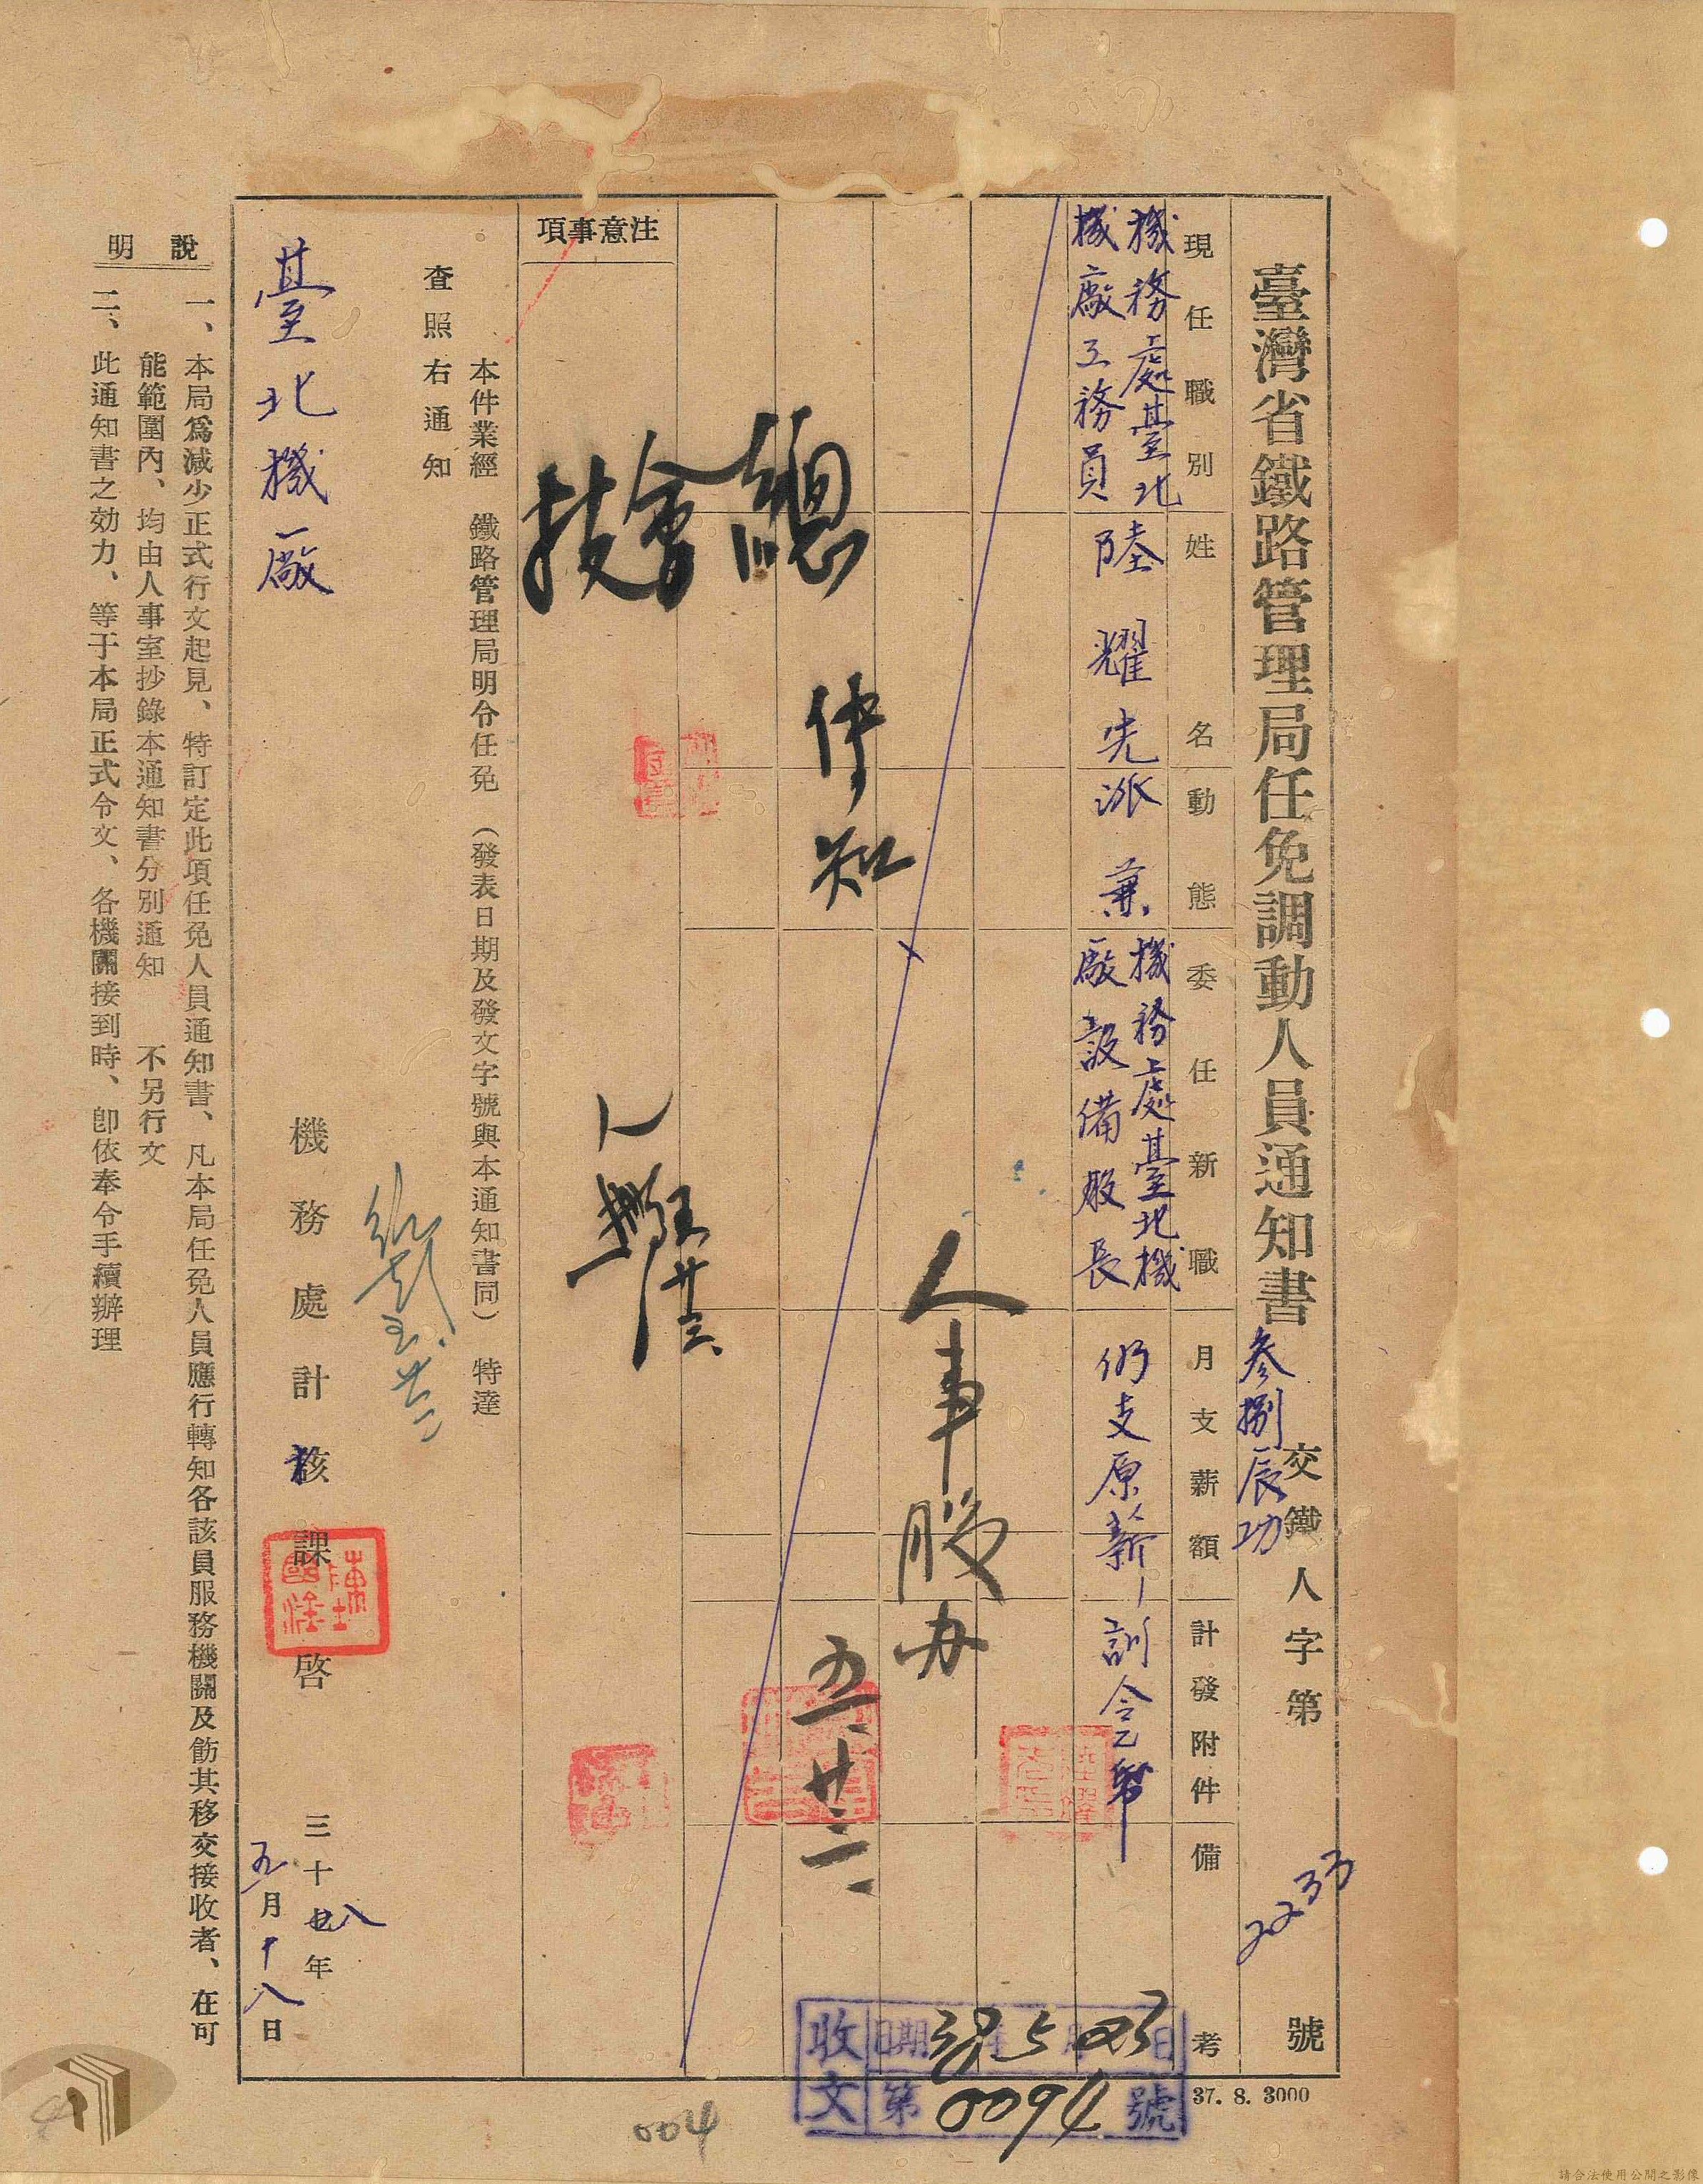 臺灣省鐵路管理局任免調動人員通知書
參捌辰功
交鐵人字第2233號
現任職別
姓名
動態
委任新職
月支薪額
計發附件
備考
機務處臺北
機廠工務員
陸耀先
派兼
機務處臺北機
廠設備股長
仍支原薪
訓令乙
人事股办
五廿三
傳知
總
會
技
注意事項
本件業經 鐵路管理局明令任免 (發表日期及發文字號與本通知書同) 特達
查照右通知
臺北機廠
機務處計核課啓
三十八年
五月十八日
說明
一、本局爲減少正式行文起見、特訂定此項任免人員通知書、凡本局任免人員應行轉知各該員服務機關及飭其移交接收者、在可
能範圍內、均由人事室抄錄本通知書分別通知 不另行文
二、此通知書之効力、等于本局正式令文、各機關接到時、卽依奉令手續辦理
收文
日期38年5月23日
第0094號
37. 8. 3000
004
請合法使用公開之影像